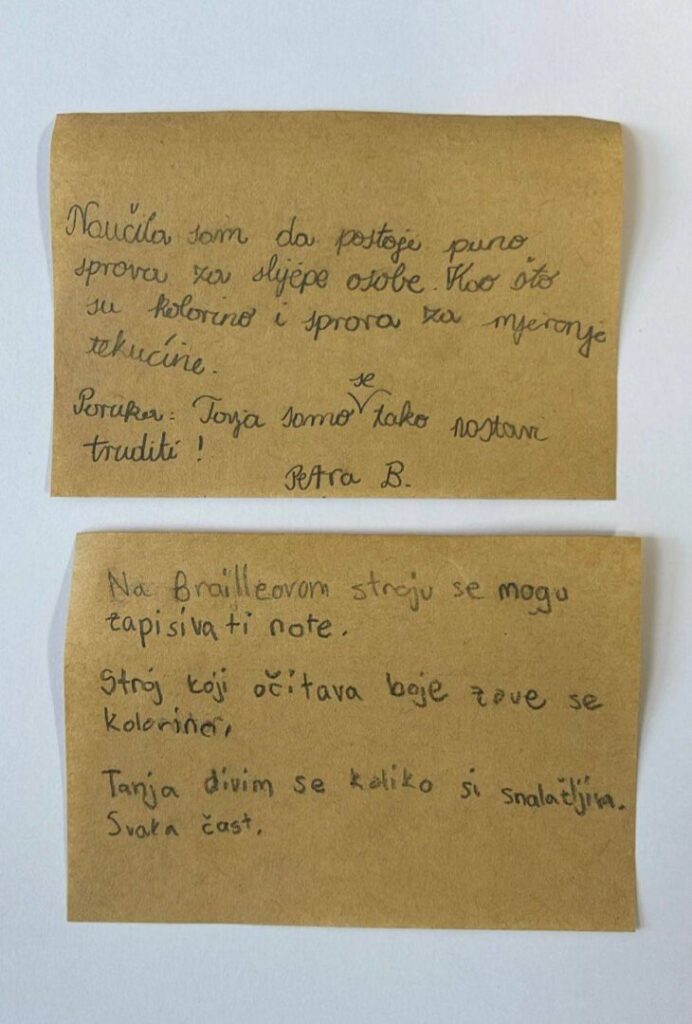 Naučila sam da postoje puno
sprava za slijepe osobe. Kao što
su kolorino i sprava za mjerenje
tekućine.
Poruka: Tanja samo se tako nastavi
truditi!
Petra B.
Na Brailleovom stroju se mogu
zapisivati note.
Stroj koji očitava boje zove se
koloriner.
Tanja divim se koliko si snalažljiva.
Svaka čast.